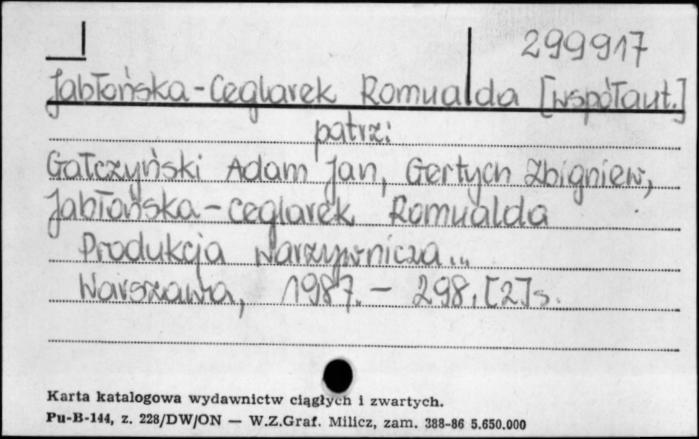 299917
Jabłońska-Ceglarek Romualda [współaut.]
patrz:
Gałczyński Adam Jan, Gertych Zbigniew,
Jabłońska-Ceglarek Romualda
Produkcja warzywnicza...
Warszawa, 1987.- 298,[2]s.
Karta katalogowa wydawnictw ciągłych i zwartych.
Pu-B-144, z. 228/DW/ON — W.Z.Graf. Milicz, zam. 388-86 5.650.000